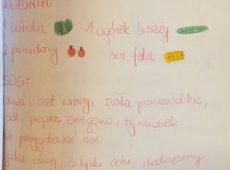 SKŁADNIKI:
1 sałata 1 ogórek świeży
2 pomidory ser feta FETA
SOS:
oliwa, ocet winny, zioła prowansalskie,
sól, pieprz, oregano, tymianek
przygotować sos
oliwy, 3 łyżki octu, dodajemy